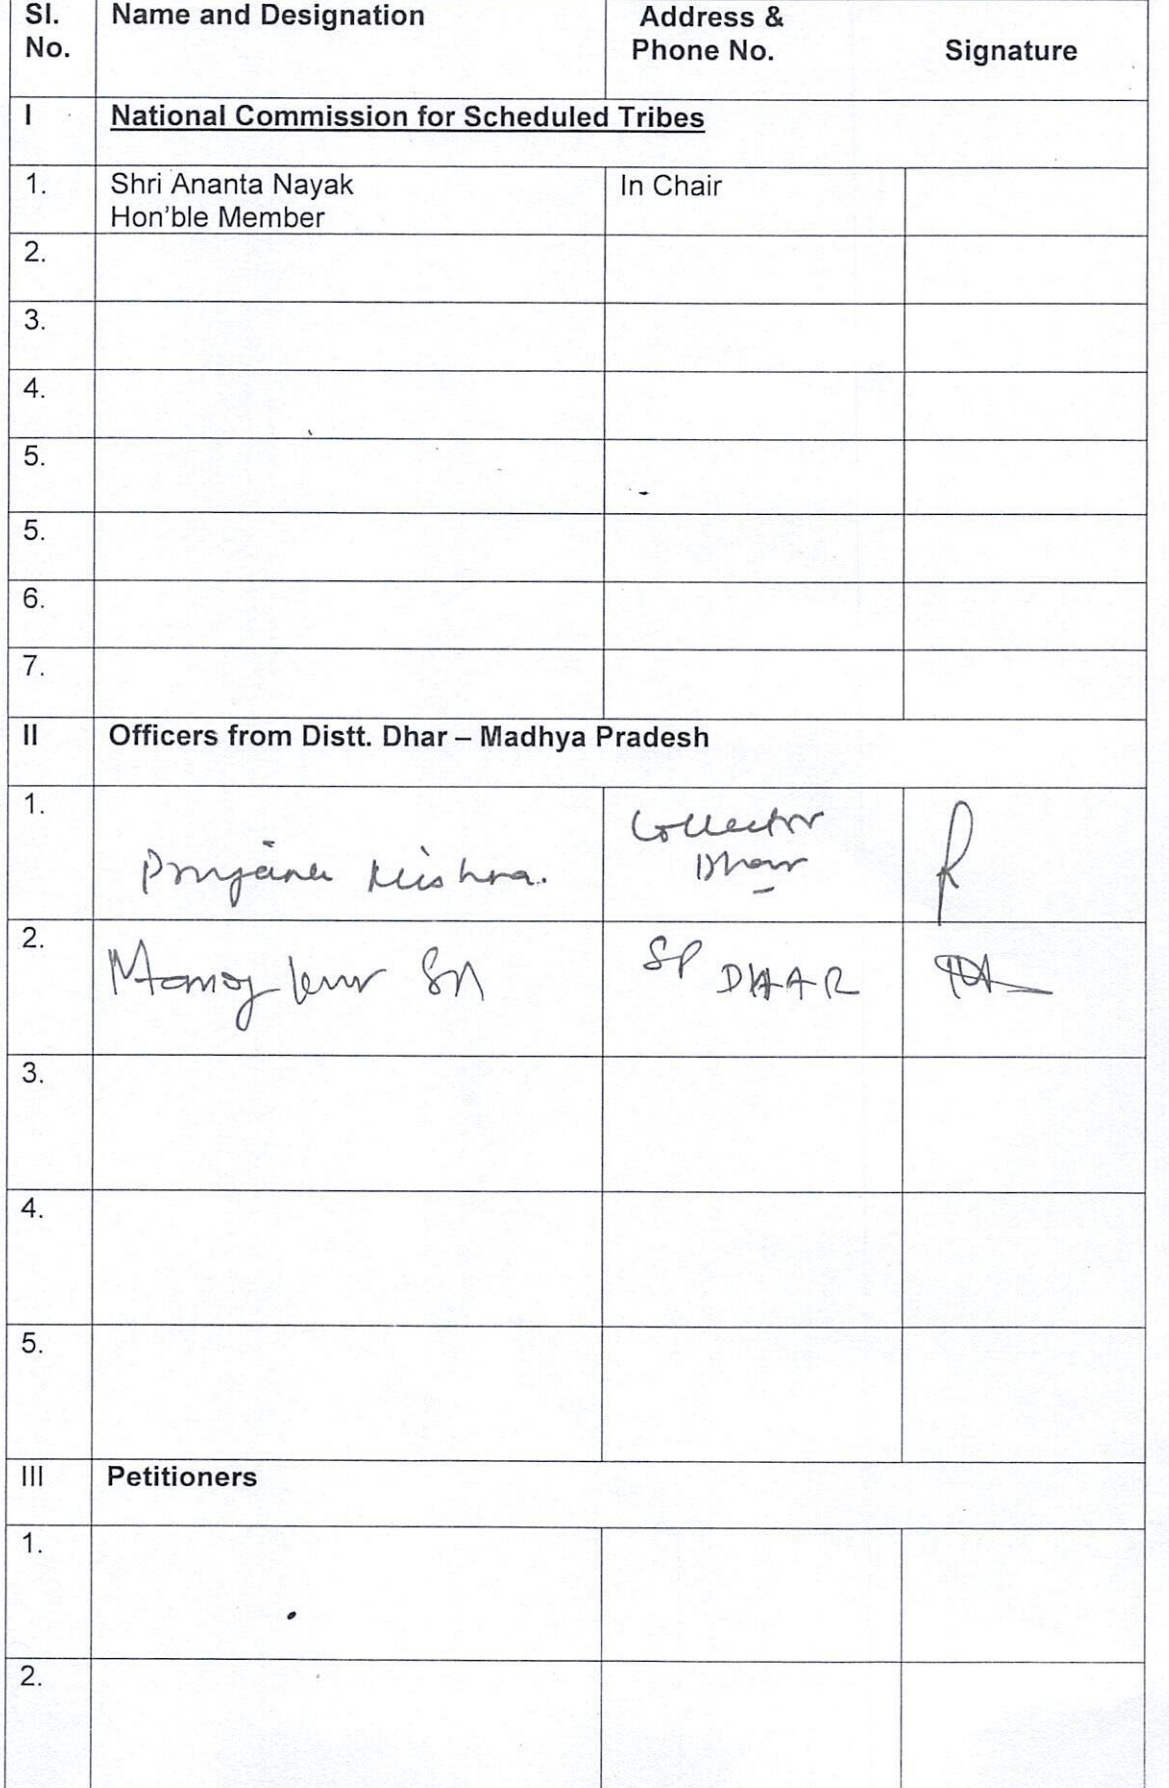 Sl. No. Name and Designation Address & Phone No. Signature
I National Commission for Scheduled Tribes
1. Shri Ananta Nayak In Chair
Hon'ble Member
2.
3.
4.
5.
5.
6.
7.
II Officers from Distt. Dhar – Madhya Pradesh
1. Mishra. Collector
Dhar
2. Manoj SP DHAR
3.
4.
5.
III Petitioners
1.
2.